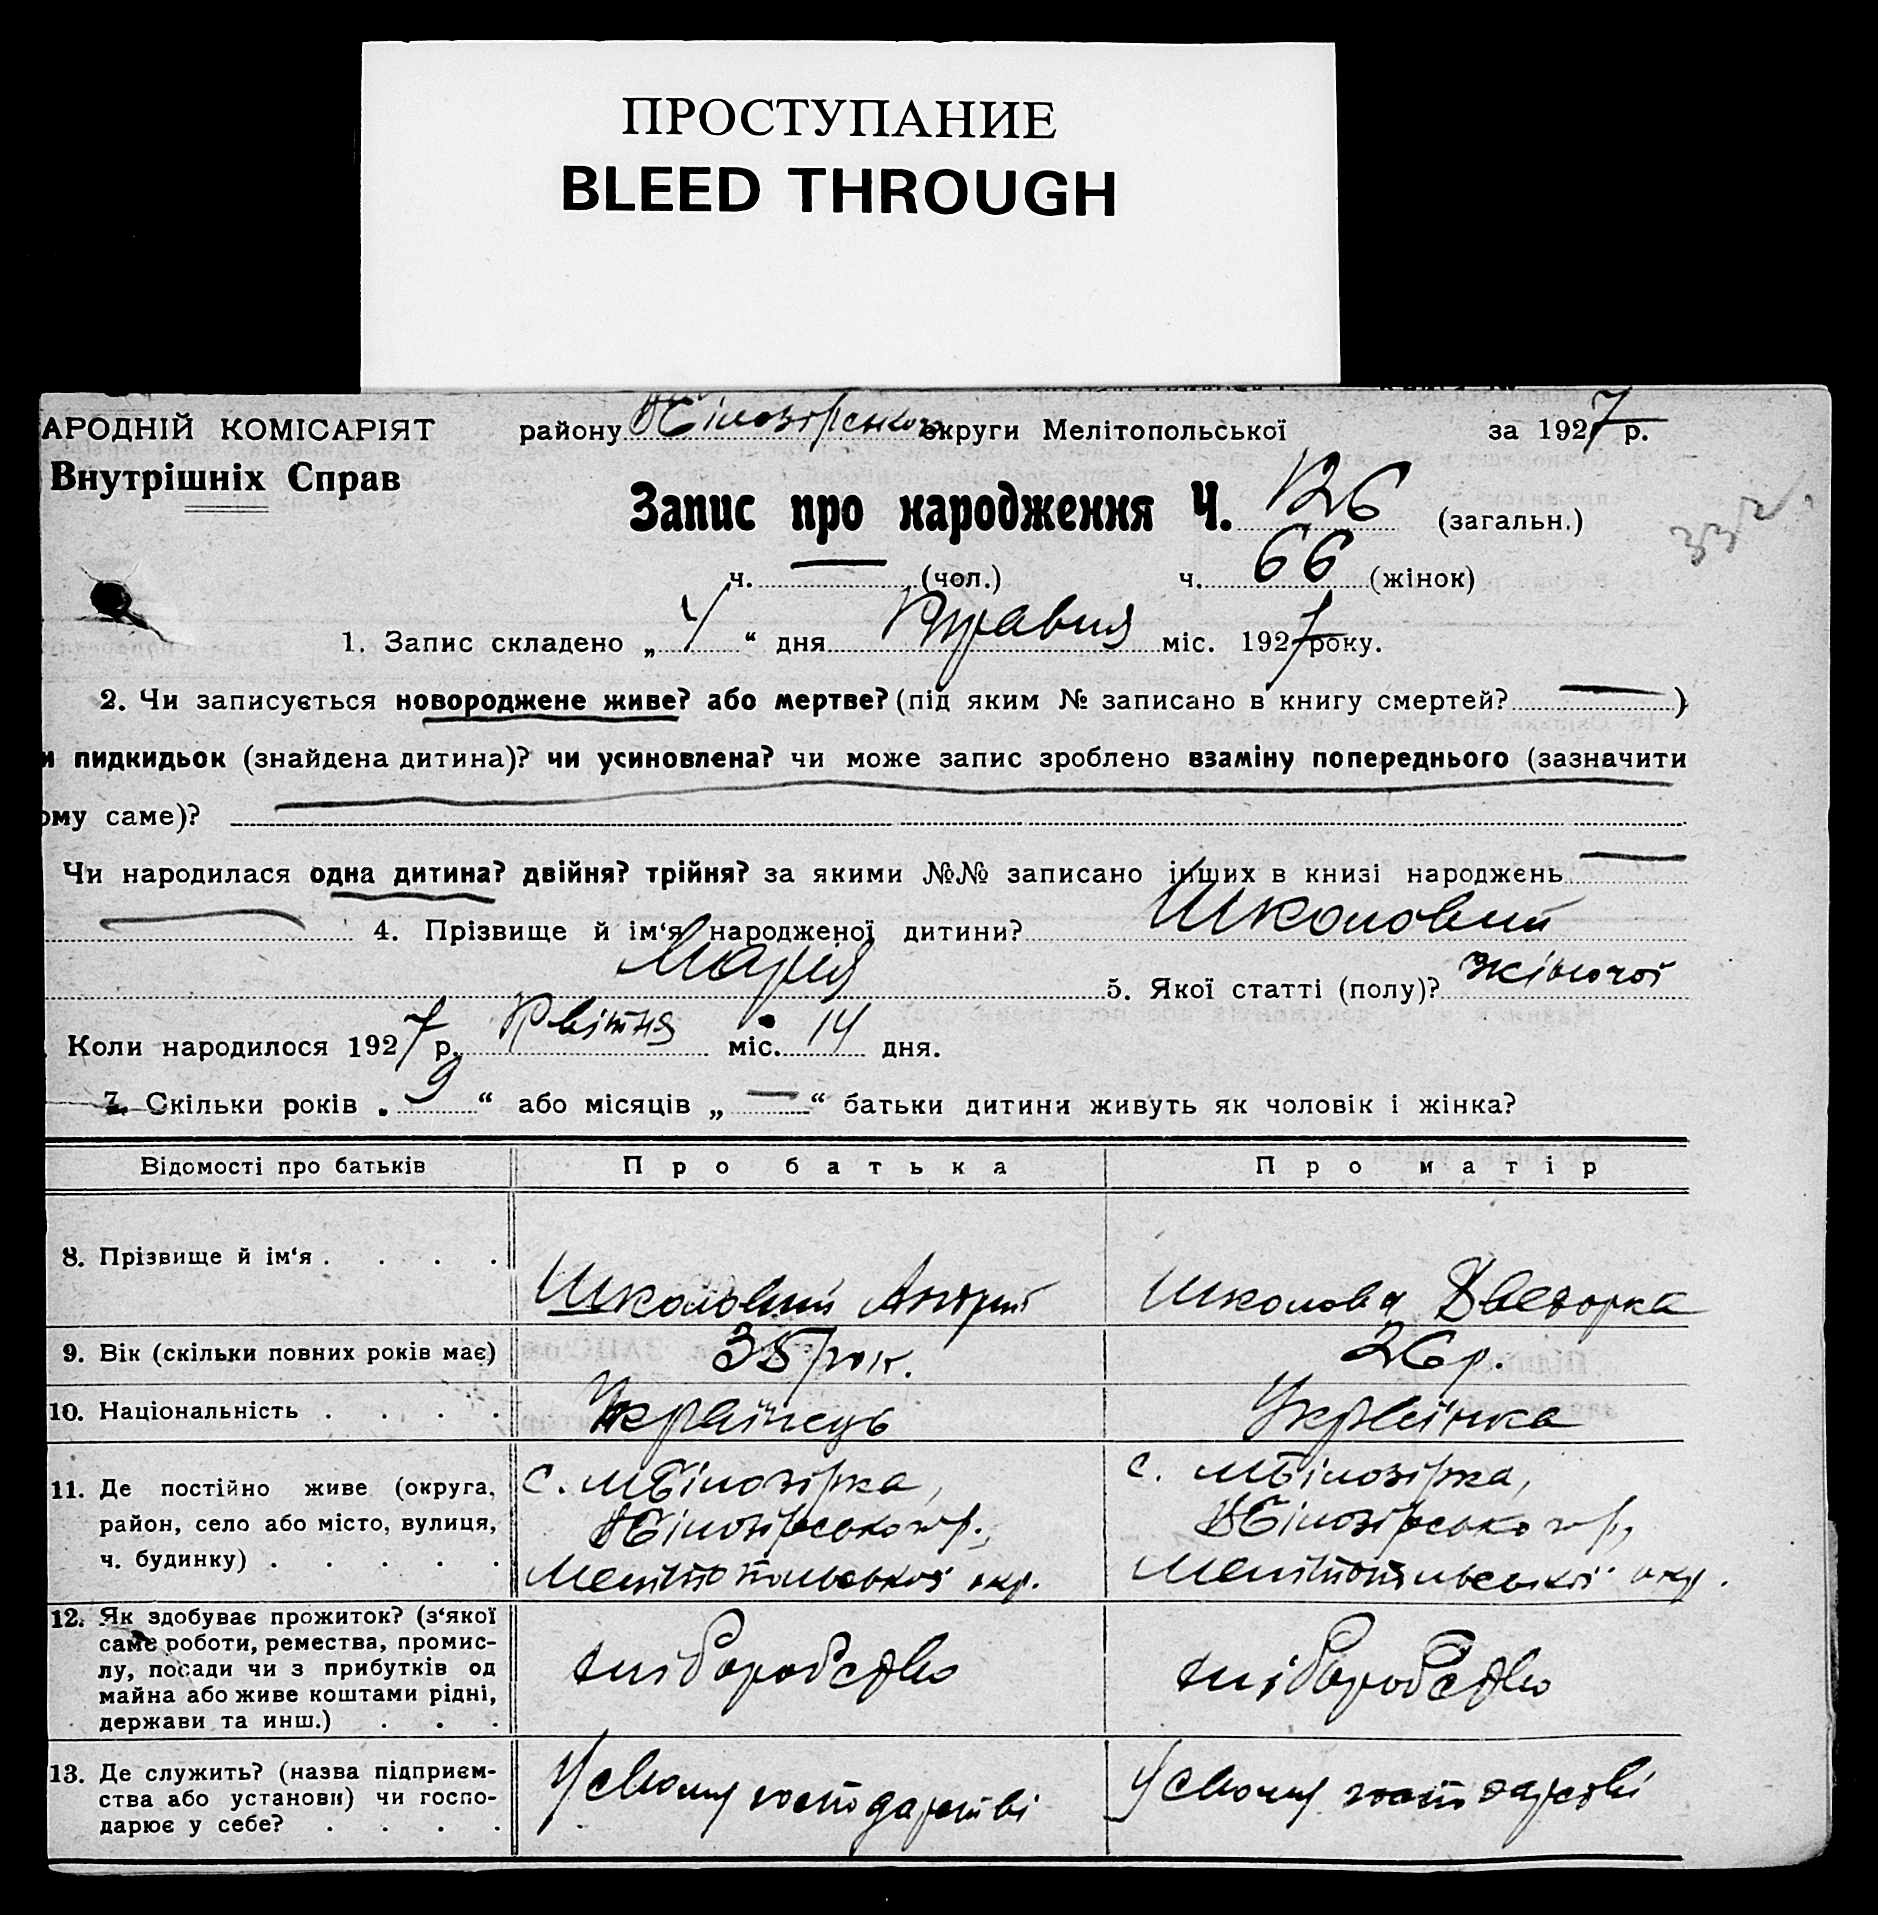 ПРОСТУПАНИЕ
BLEED THROUGH
АРОДНІЙ КОМІСАРІЯТ
Внутрішніх Справ
району округи Мелітопольської за 1927 р.
Запис про народження Ч. 126 (загальн.)
ч. — (чол.) ч. 66 (жінок)
1. Запис складено „ 4 “ дня Травня міс. 1927 року.
2. Чи записується новороджене живе? або мертве? (під яким № записано в книгу смертей? — )
и пидкидьок (знайдена дитина)? чи усиновлена? чи може запис зроблено взаміну попереднього (зазначити
ому саме)?
Чи народилася одна дитина? двійня? трійня? за якими №№ записано інших в книзі народжень —
4. Прізвище й ім‘я народженої дитини? Школовий
Марія 5. Якої статті (полу)? жіночої
Коли народилося 1927 р. Квітня міс. 14 дня.
7. Скільки років „ 9 “ або місяців „ — “ батьки дитини живуть як чоловік і жінка?
Відомості про батьків Про батька Про матір
8. Прізвище й ім‘я . . . . Школовий Андрій Школова
9. Вік (скільки повних років має) 35 рок. 26 р.
10. Національність . . . . Українець Українка
11. Де постійно живе (округа,
район, село або місто, вулиця,
ч. будинку) . . . . .
с. мБілозірка,
Мелітопольської окр.
с. мБілозірка,
Мелітопольської окр.
12. Як здобуває прожиток? (з‘якої
саме роботи, ремества, промис-
лу, посади чи з прибутків од
майна або живе коштами рідні,
держави та инш.) . . .
хліборобство хліборобство
13. Де служить? (назва підприєм-
ства або установи) чи госпо-
дарює у себе? . . . .
У свому господарстві У свому господарстві